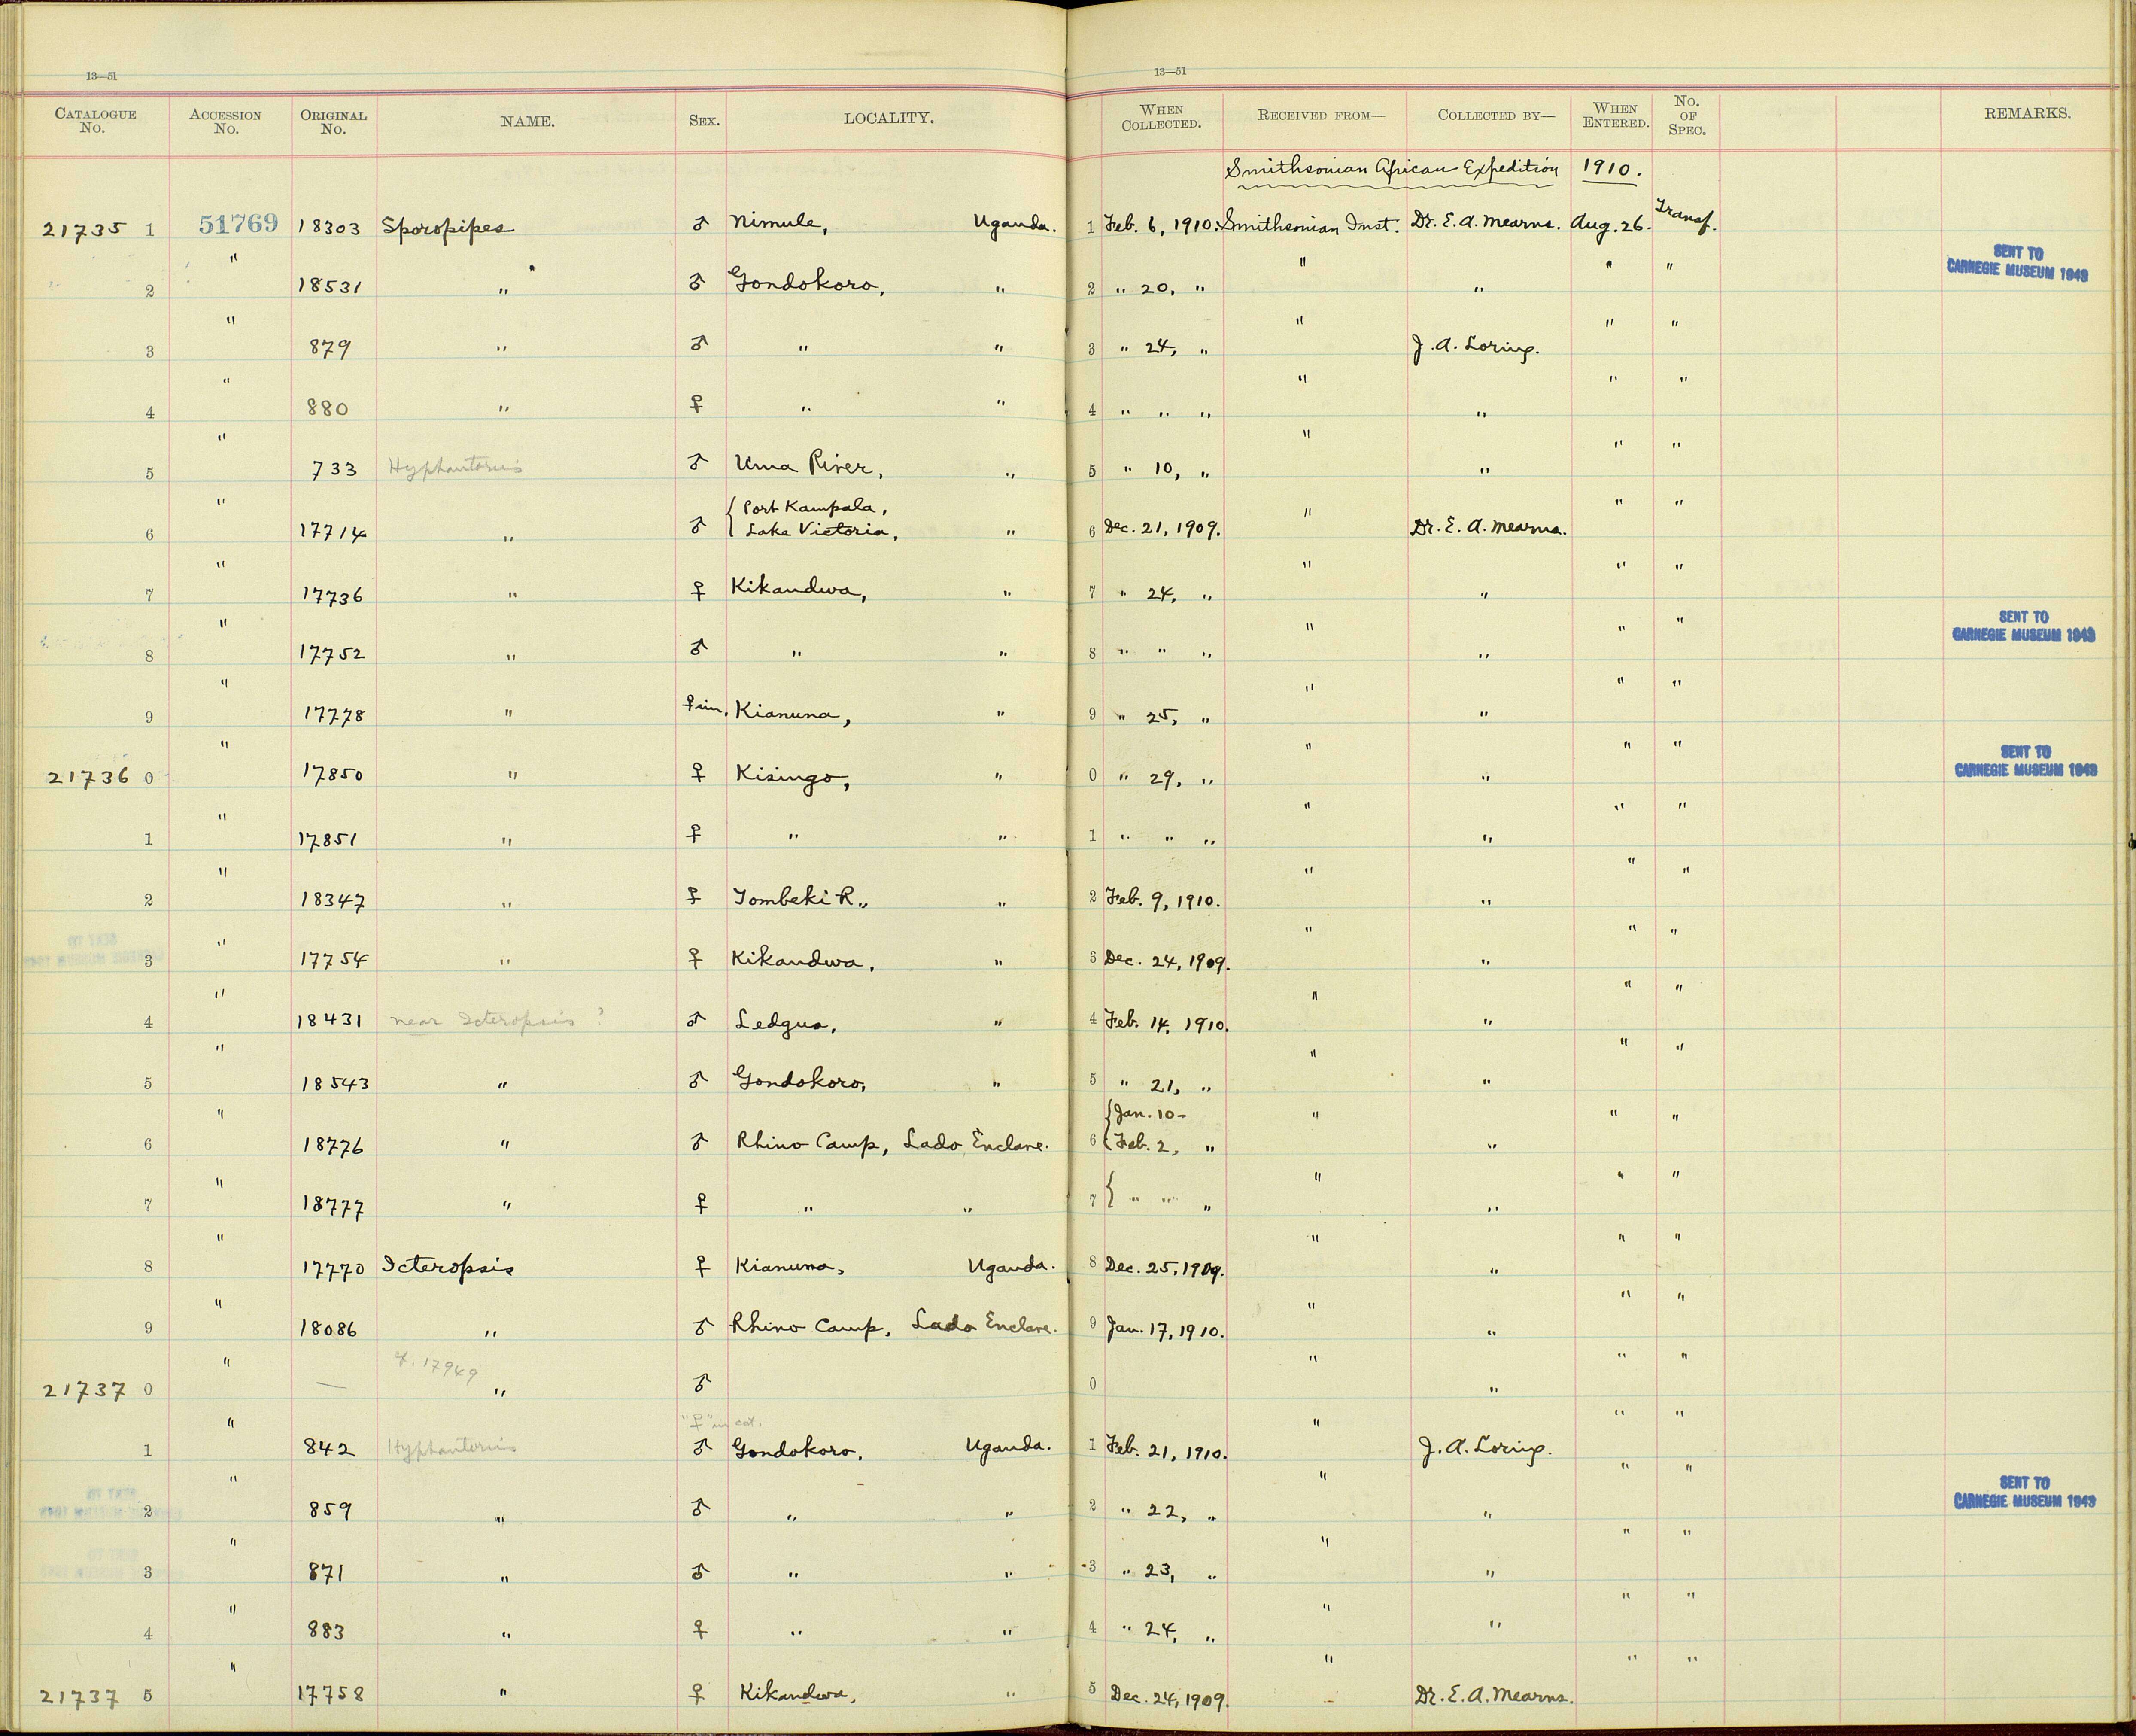 13—51 13—51
CATALOGUE No. ACCESSION No. ORIGINAL No. NAME. SEX. LOCALITY. WHEN COLLECTED. RECEIVED FROM— COLLECTED BY— WHEN ENTERED. No. OF SPEC. REMARKS.
Smithsonian African Expedition 1910.
21735 1 51769 18303 Sporopipes ♂ Nimule, Uganda. 1 Feb. 6, 1910. Smithsonian Inst. Dr. E. A. Mearns. Aug. 26. Transf.
2 " 18531 " ♂ Gondokoro, " 2 " 20, " " " " " SENT TO CARNEGIE MUSEUM 1943
3 " 879 " ♂ " " 3 " 24, " " J. A. Loring. " "
4 " 880 " ♀ " " 4 " " " " " " "
5 " 733 Hyphantornis ♂ Uma River, " 5 " 10, " " " " "
6 " 17714 " ♂ { Port Kampala, Lake Victoria, " 6 Dec. 21, 1909. " Dr. E. A. Mearns. " "
7 " 17736 " ♀ Kikandwa, " 7 " 24, " " " " "
8 " 17752 " ♂ " " 8 " " " " " " " SENT TO CARNEGIE MUSEUM 1943
9 " 17778 " ♀ im. Kianuna, " 9 " 25, " " " " "
21736 0 " 17850 " ♀ Kisingo, " 0 " 29, " " " " " SENT TO CARNEGIE MUSEUM 1943
1 " 17851 " ♀ " " 1 " " " " " " "
2 " 18347 " ♀ Tombeki R., " 2 Feb. 9, 1910. " " " "
3 " 17754 " ♀ Kikandwa, " 3 Dec. 24, 1909. " " " "
4 " 18431 near Icteropsis ? ♂ Ledgus, " 4 Feb. 14, 1910. " " " "
5 " 18543 " ♂ Gondokoro, " 5 " 21, " " " " "
6 " 18776 " ♂ Rhino Camp, Lado Enclave. 6 { Jan. 10- Feb. 2, " " " " "
7 " 18777 " ♀ " " 7 { " " " " " " "
8 " 17770 Icteropsis ♀ Kianuna, Uganda. 8 Dec. 25, 1909. " " " "
9 " 18086 " ♂ Rhino Camp, Lado Enclave. 9 Jan. 17, 1910. " " " "
21737 0 " — 17949 " ♂ 0 " " " "
"♀" in cat.
1 " 842 Hyphantornis ♂ Gondokoro, Uganda. 1 Feb. 21, 1910. " J. A. Loring. " "
2 " 859 " ♂ " " 2 " 22, " " " " " SENT TO CARNEGIE MUSEUM 1943
3 " 871 " ♂ " " 3 " 23, " " " " "
4 " 883 " ♀ " " 4 " 24, " " " " "
21737 5 " 17758 " ♀ Kikandwa, " 5 Dec. 24, 1909. " Dr. E. A. Mearns. " "